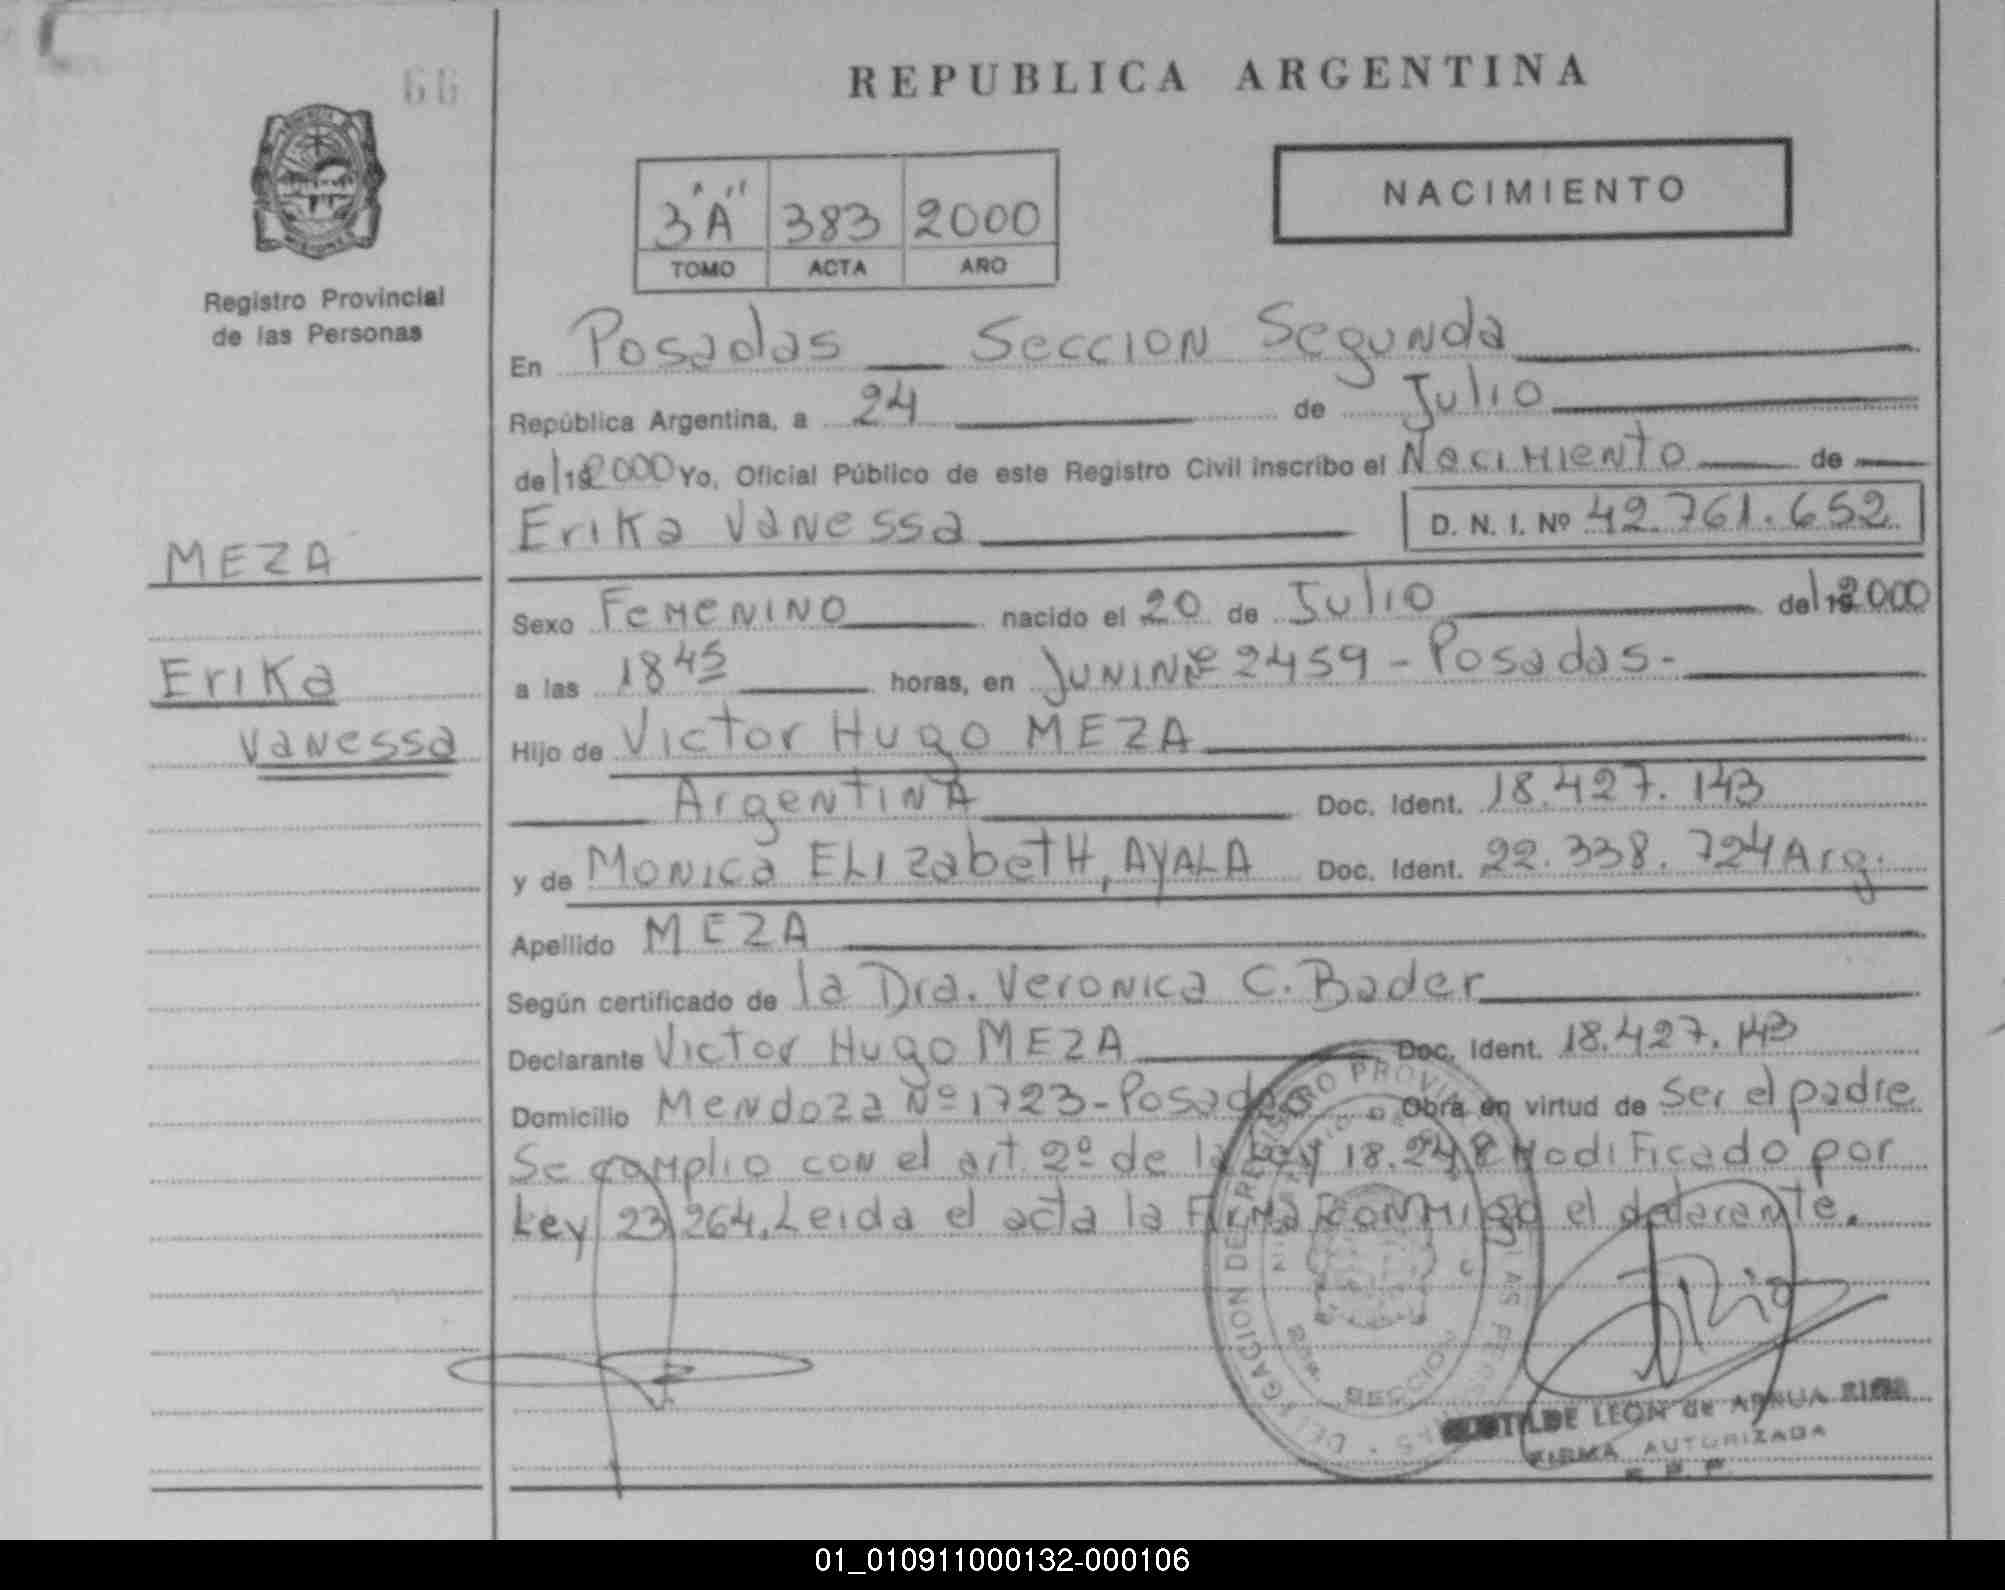 66
REPUBLICA ARGENTINA
NACIMIENTO
3 "A" 383 2000
TOMO ACTA AÑO
Registro Provincial
de las Personas
En Posadas Seccion Segunda
República Argentina, a 24 de Julio
de 192000 Yo, Oficial Público de este Registro Civil inscribo el Nacimiento de
Erika Vanessa D. N. I. Nº 42.761.652
MEZA
Erika
Vanessa
Sexo Femenino nacido el 20 de Julio de 192000
a las 18 45 horas, en Junin Nº 2459 - Posadas -
Hijo de Victor Hugo MEZA
Argentina Doc. Ident. 18.427.143
y de Monica Elizabeth, AYALA Doc. Ident. 22.338.724 Arg.
Apellido MEZA
Según certificado de la Dra. Veronica C. Bader
Declarante Victor Hugo MEZA Doc. Ident. 18.427.143
Domicilio Mendoza Nº 1723 - Posadas Obra en virtud de Ser el padre
Se complio con el art. 2º de la Ley 18.248 Modificado por
Ley 23.264. Leida el acta la Firma conmigo el declarante.
DELEGACION DE REGISTRO PROVINCIAL DE LAS PERSONAS
SECCION
LEON de
FIRMA AUTORIZADA
01_010911000132-000106